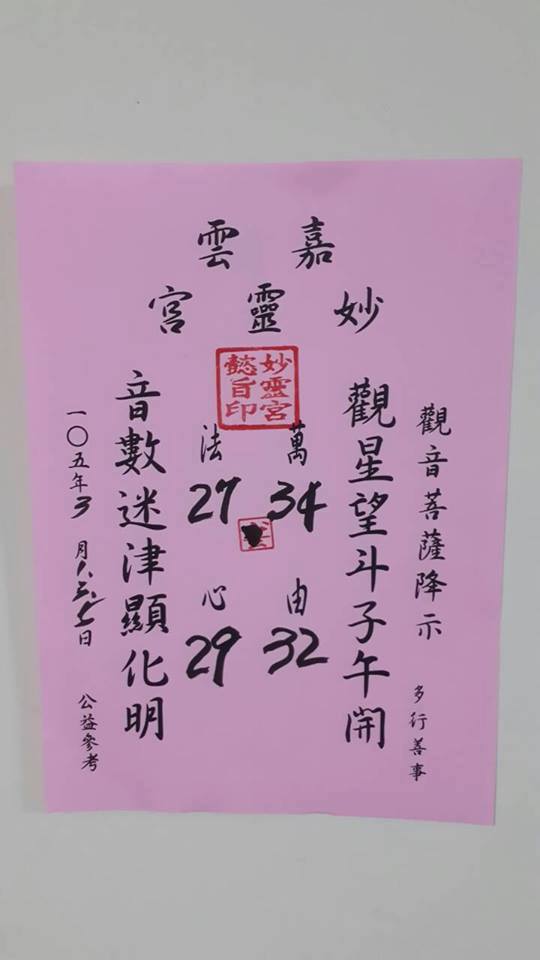 嘉雲
妙靈宮
妙靈宮
懿旨印
觀音菩薩降示
多行善事
觀星望斗子午開
萬法由心
34
27
32
29
音數迷津顯化明
一〇五年3月1.3.7日
公益參考